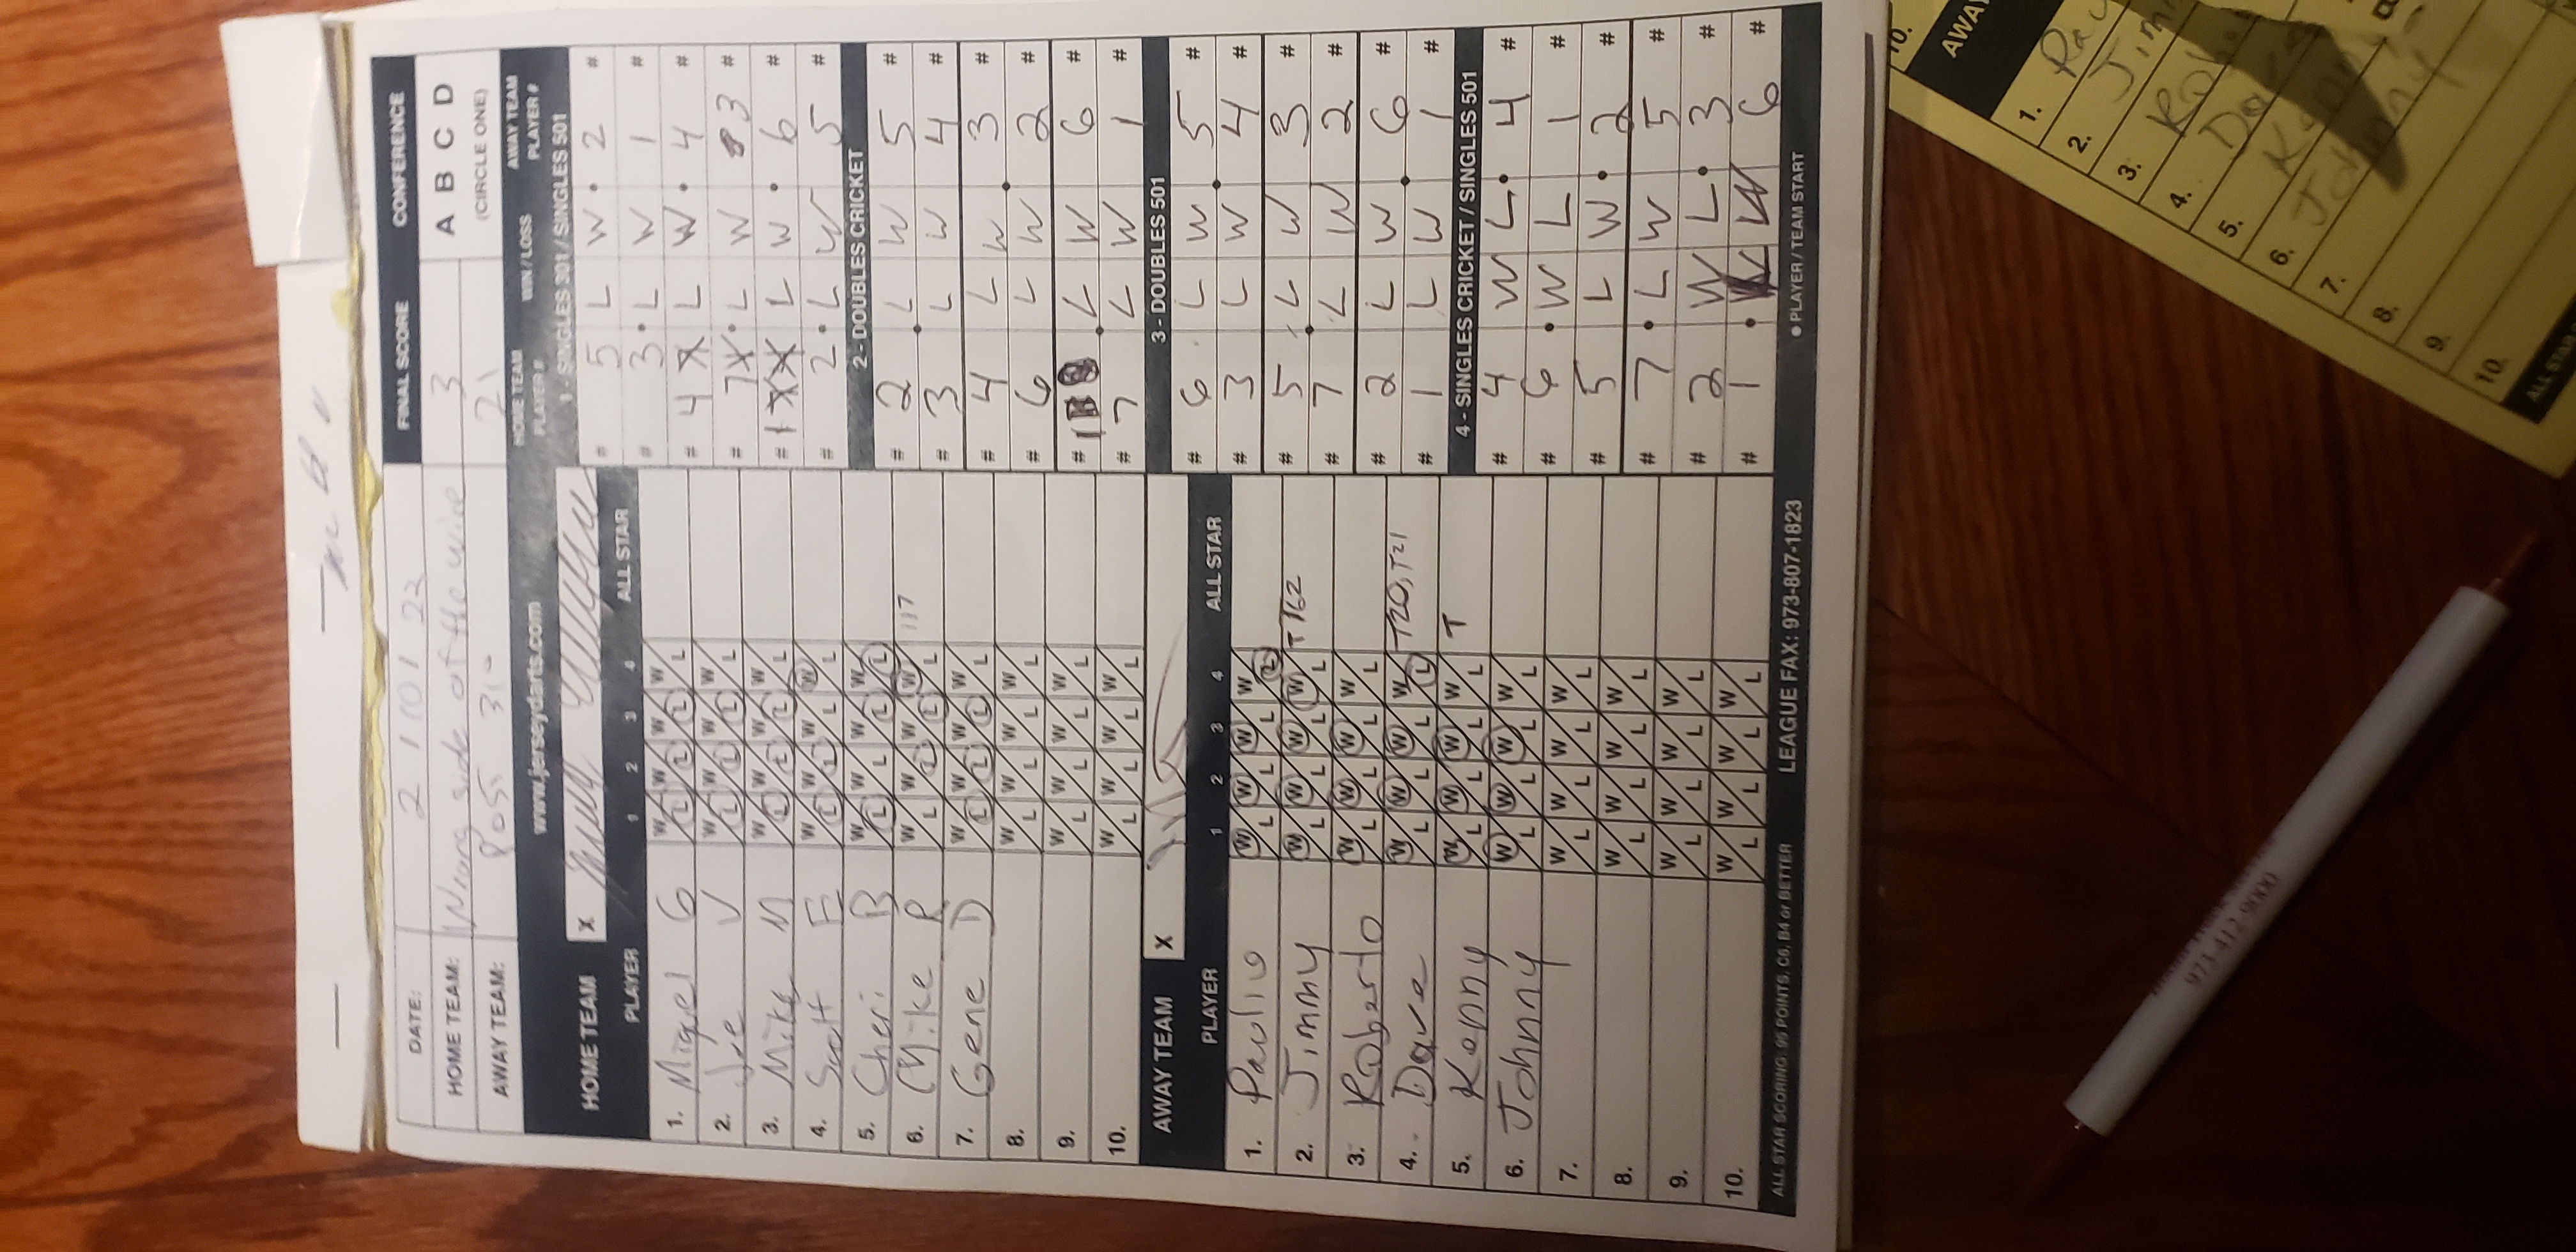 DATE: 2 / 01 / 22
FINAL SCORE
CONFERENCE
HOME TEAM: Wrong side of the wire 3
A B C D
AWAY TEAM: Post 310 21
(CIRCLE ONE)
www.jerseydarts.com
HOME TEAM X
PLAYER 1 2 3 4 ALL STAR
1. Miguel G W L W L W L W L
2. Joe V W L W L W L W L
3. Mike M W L W L W L W L
4. Scott F W L W L W L W L
5. Cheri B W L W L W L W L
6. Mike R W L W L W L W L 117
7. Gene D W L W L W L W L
8. W L W L W L W L
9. W L W L W L W L
10. W L W L W L W L
AWAY TEAM X
PLAYER 1 2 3 4 ALL STAR
1. Paulio W L W L W L W L
2. Jimmy W L W L W L W L T162
3. Roberto W L W L W L W L
4. Dave W L W L W L W L T20, T21
5. Kenny W L W L W L W L T
6. Johnny W L W L W L W L
7. W L W L W L W L
8. W L W L W L W L
9. W L W L W L W L
10. W L W L W L W L
HOME TEAM PLAYER #
WIN / LOSS
AWAY TEAM PLAYER #
1 - SINGLES 301 / SINGLES 501
# 5 L W • 2 #
# 3 • L W 1 #
# 4 L W • 4 #
# 7 • L W 3 #
# 1 L W • 6 #
# 2 • L W 5 #
2 - DOUBLES CRICKET
# 2 L W 5 #
# 3 L W 4 #
# 4 L W 3 #
# 6 L W 2 #
# 1 L W 6 #
# 7 L W 1 #
3 - DOUBLES 501
# 6 L W 5 #
# 3 L W 4 #
# 5 L W 3 #
# 7 L W 2 #
# 2 L W 6 #
# 1 L W 1 #
4 - SINGLES CRICKET / SINGLES 501
# 4 W L • 4 #
# 6 • W L 1 #
# 5 L W • 2 #
# 7 • L W 5 #
# 2 W L • 3 #
# 1 • L W 6 #
ALL STAR SCORING: 95 POINTS, C6, B4 or BETTER
LEAGUE FAX: 973-807-1823
● PLAYER / TEAM START
10.
AWAY
1.
2. Jim
3.
4.
5.
6.
7.
8.
9.
10.
ALL STAR
973-412-9000